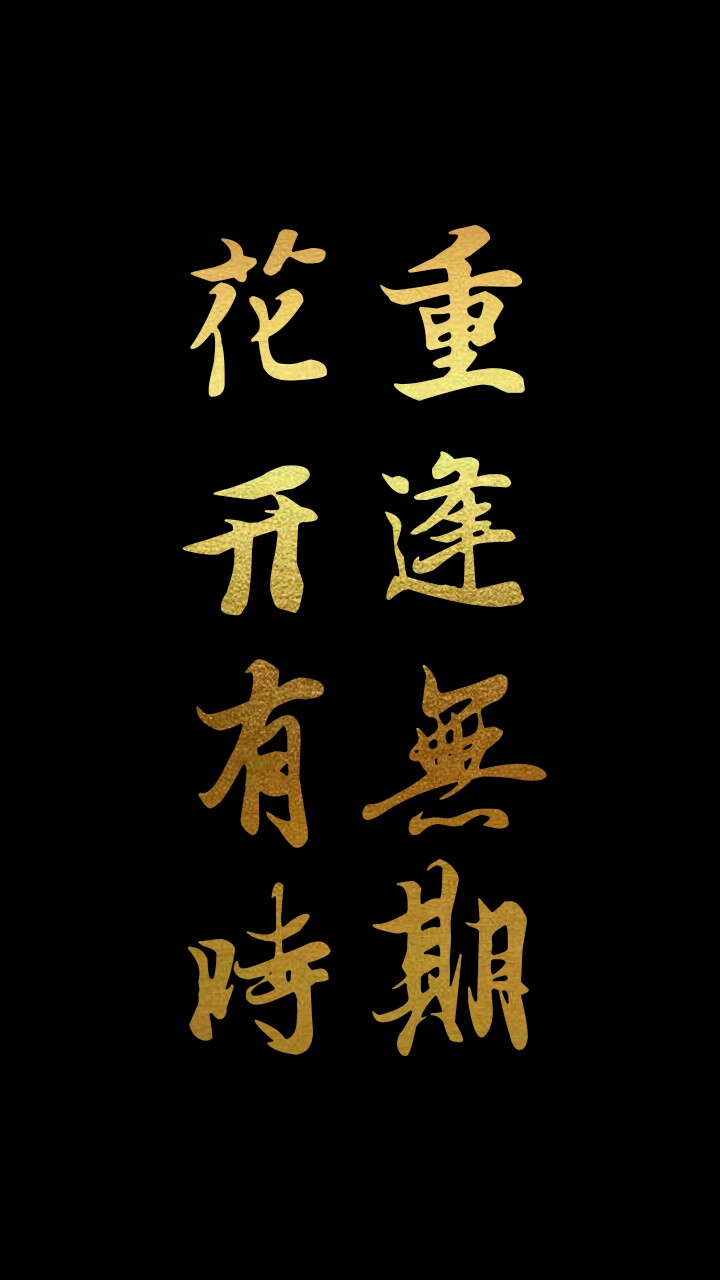 花开有時
重逢無期